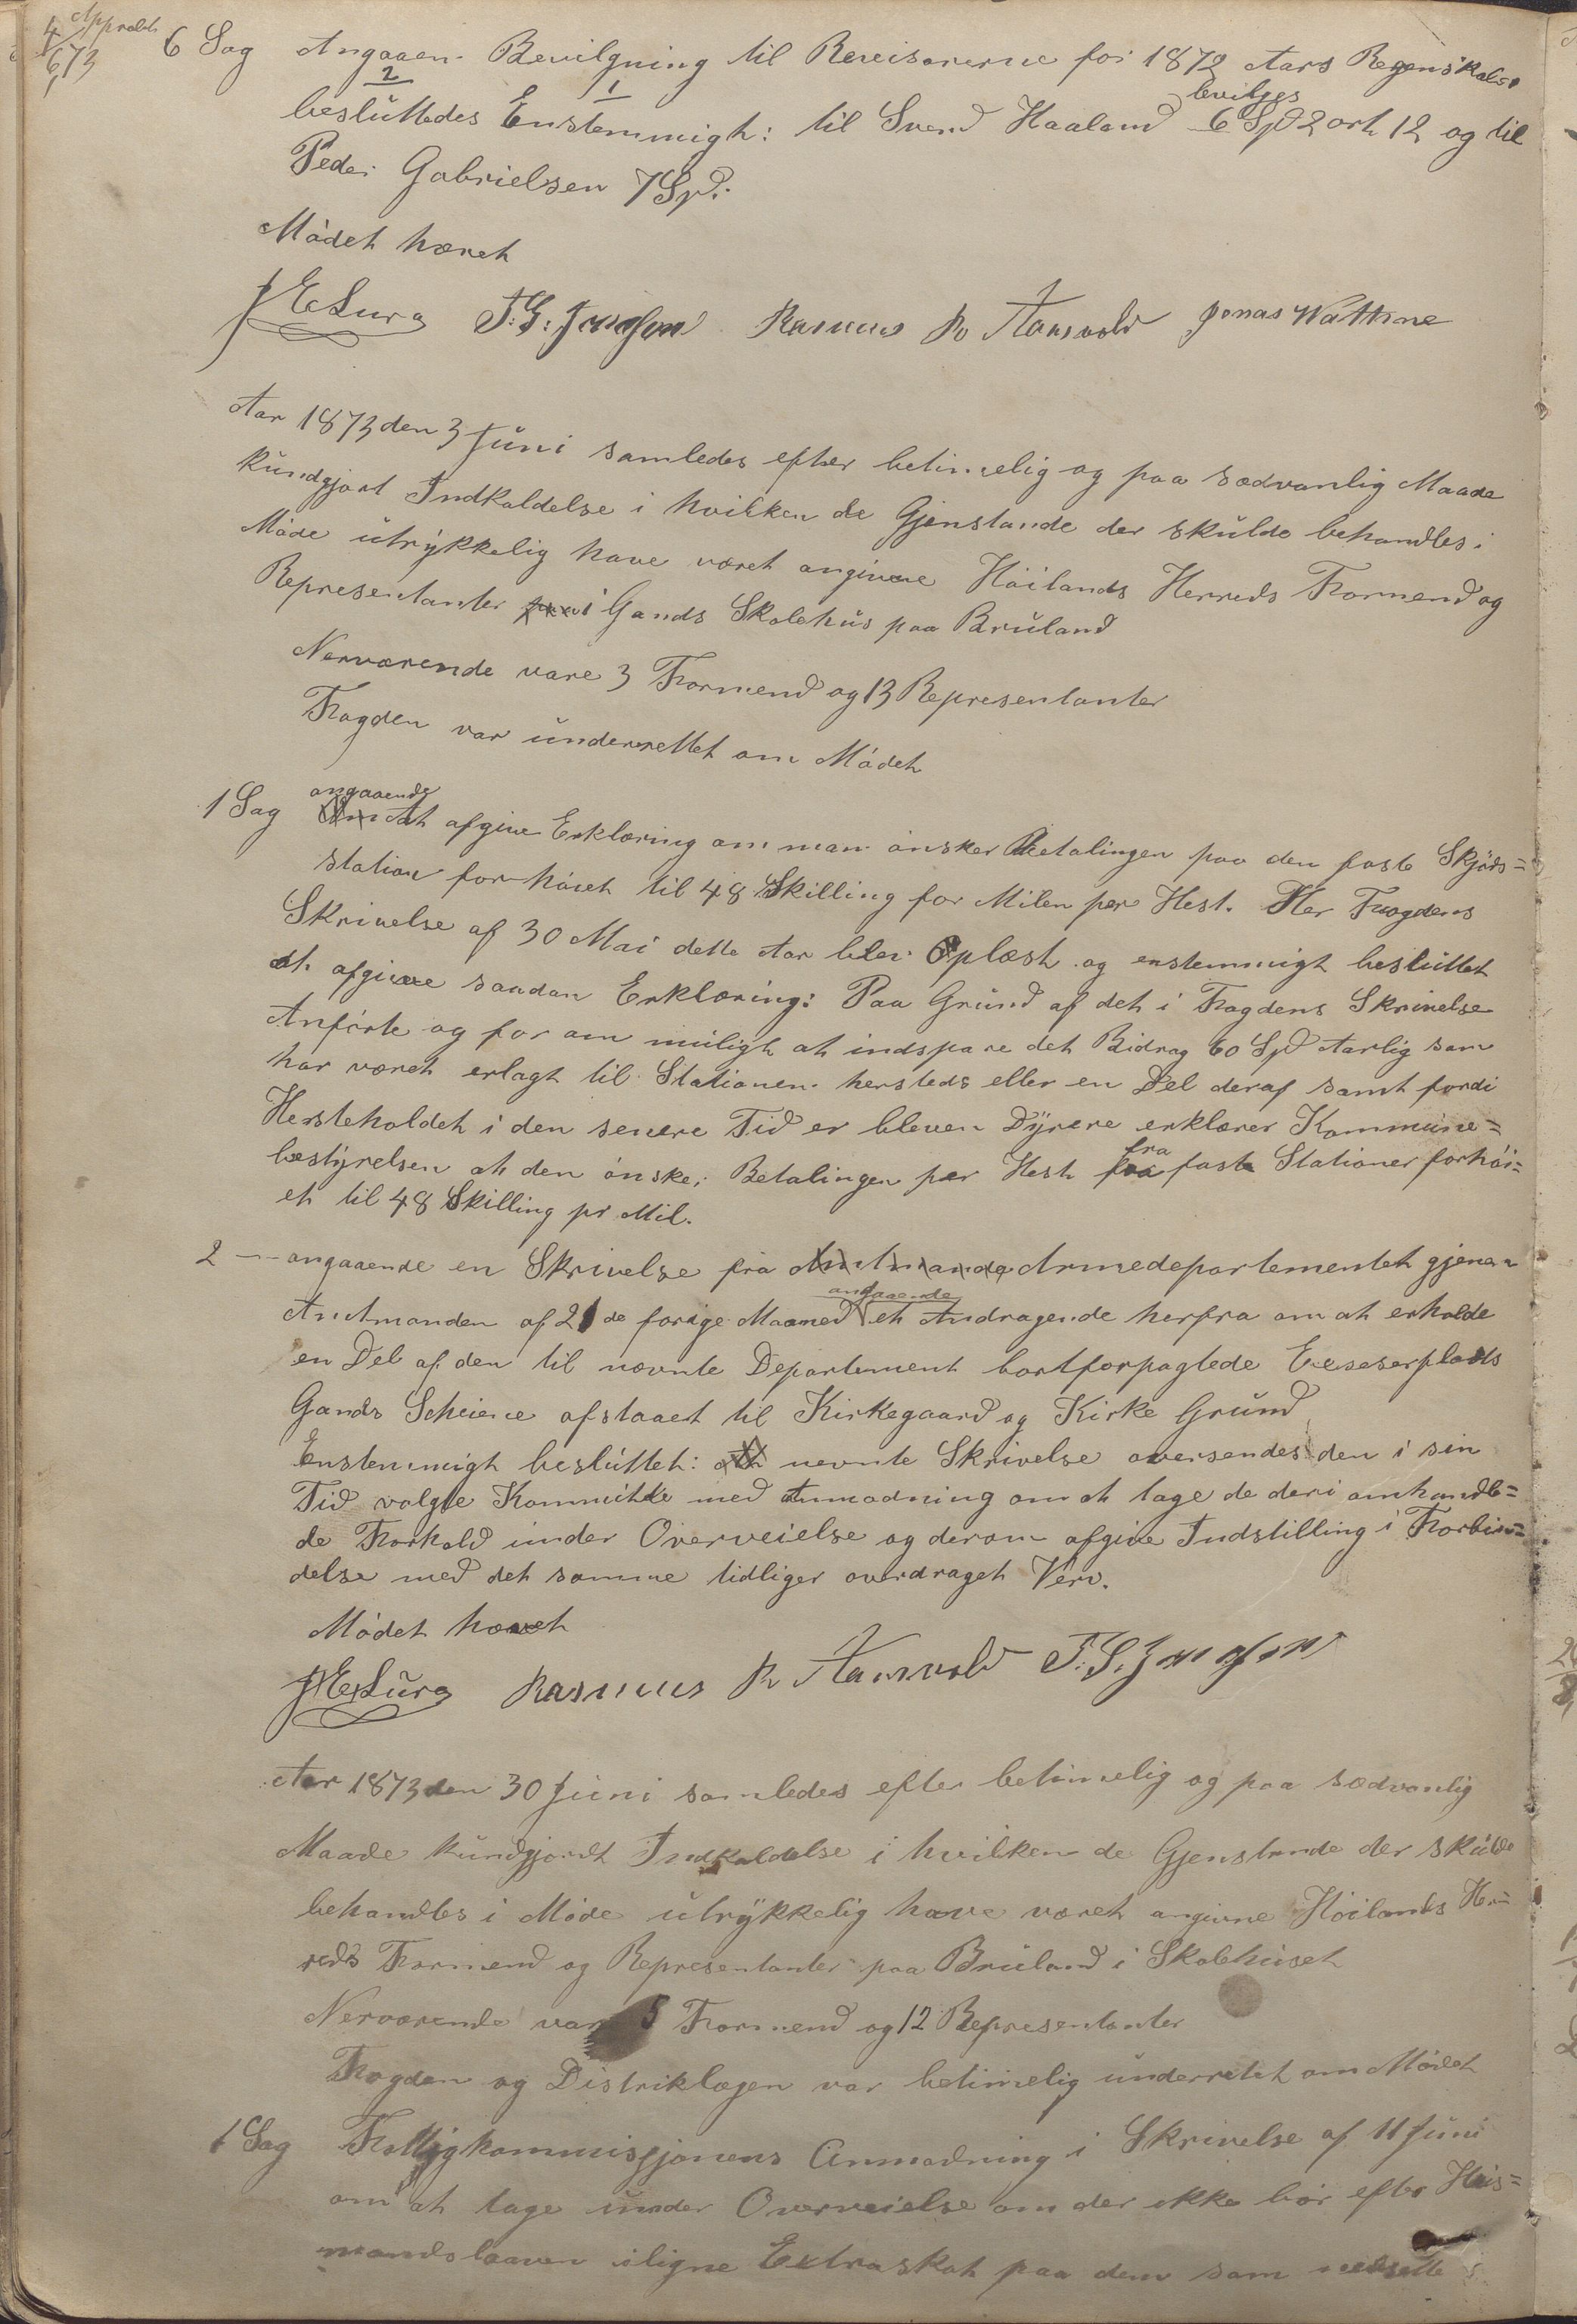 Approbt
4/6 73
6 Sag Angaaen Bevilgning til Reveisorerne for 1872 Aars Regenskabs
besluttedes Enstemmigt: til Svend Haaland bevilges 6 Spd 2 ort 12 og til
Peder Gabrielsen 7 Spd:
Mödet hævet
JELura T. G. Rasmus R Aamvold Jonas Watthne
Aar 1873 den 3 Juni samledes efter betimelig og paa sædvanlig Maade
kundgjort Indkaldelse i hvilken de Gjenstande der skulde behandles i
Möde utrykkelig have været angivne Höilands Herreds Formend og
Representanter i Gands Skolehus paa Bruland
Nerværende vare 3 Formend og 13 Representanter
Fogden var underrettet om Mödet
1 Sag angaaende At afgive Erklæring om man önsker Betalingen paa den faste Skjöds=
station forhöiet til 48 Skilling for Milen per Hest. Her Fogdens
Skrivelse af 30 Mai dette Aar blev Oplæst og enstemmigt besluttet
at afgive saadan Erklæring: Paa Grund af det i Fogdens Skrivelse
Anförte og for om muligt at indspare det Bidrag 60 Spd Aarlig som
har været erlagt til Stationen hersteds eller en Del deraf samt fordi
Hersteholdet i den senere Tid er bleven Dyrere erklærer Kommune=
bestyrelsen at den önsker Betalingen per Hest fra faste Stationer forhöi=
et til 48 Skilling pr Mil.
2 — angaaende en Skrivelse fra Armedepartementet gjenem
Amtmanden af 21de forige Maaned angaaende et Andragende herfra om at erholde
en Del af den til nævnte Departement bortforpagtede Exeserplads
Gands Scheiene afstaaet til Kirkegaard og Kirke Grund
Enstemmigt besluttet: nevnte Skrivelse oversendes den i sin
Tid valgte Kommitte med Anmodning om at tage de deri omhandle=
de Forhold under Overveielse og derom afgive Indstilling i Forbin=
delse med det samme tidliger overdraget Verv.
Mödet hævet
JELura Rasmus R Aamvold T. G.
Aar 1873 den 30 Juni samledes efter betimelig og paa sædvanlig
Maade kundgjordt Indkaldelse i hvilken de Gjenstande der skulde
behandles i Möde utrykkelig have været angivne Höilands Her=
reds Formend og Representanter paa Bruland i Skolehuset
Nerværende var Formend og 12 Representanter
Fogden og Distriklægen var betimelig underretet om Mödet
1 Sag Fattigkommissjonens Anmodning i Skrivelse af 11 Juni
om at tage under Overveielse om der ikke bör efter Hus=
mandsloven iligne Extraskat paa dem som nedsette